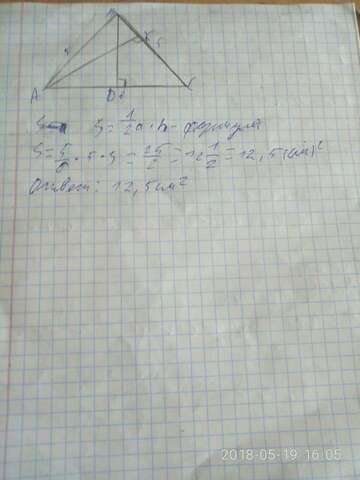 B
A D C
S = 1/2 a · h - формула
= 25/2 = 12 1/2 = 12,5 (см)²
Ответ: 12,5 см²
2018-05-19 16:05